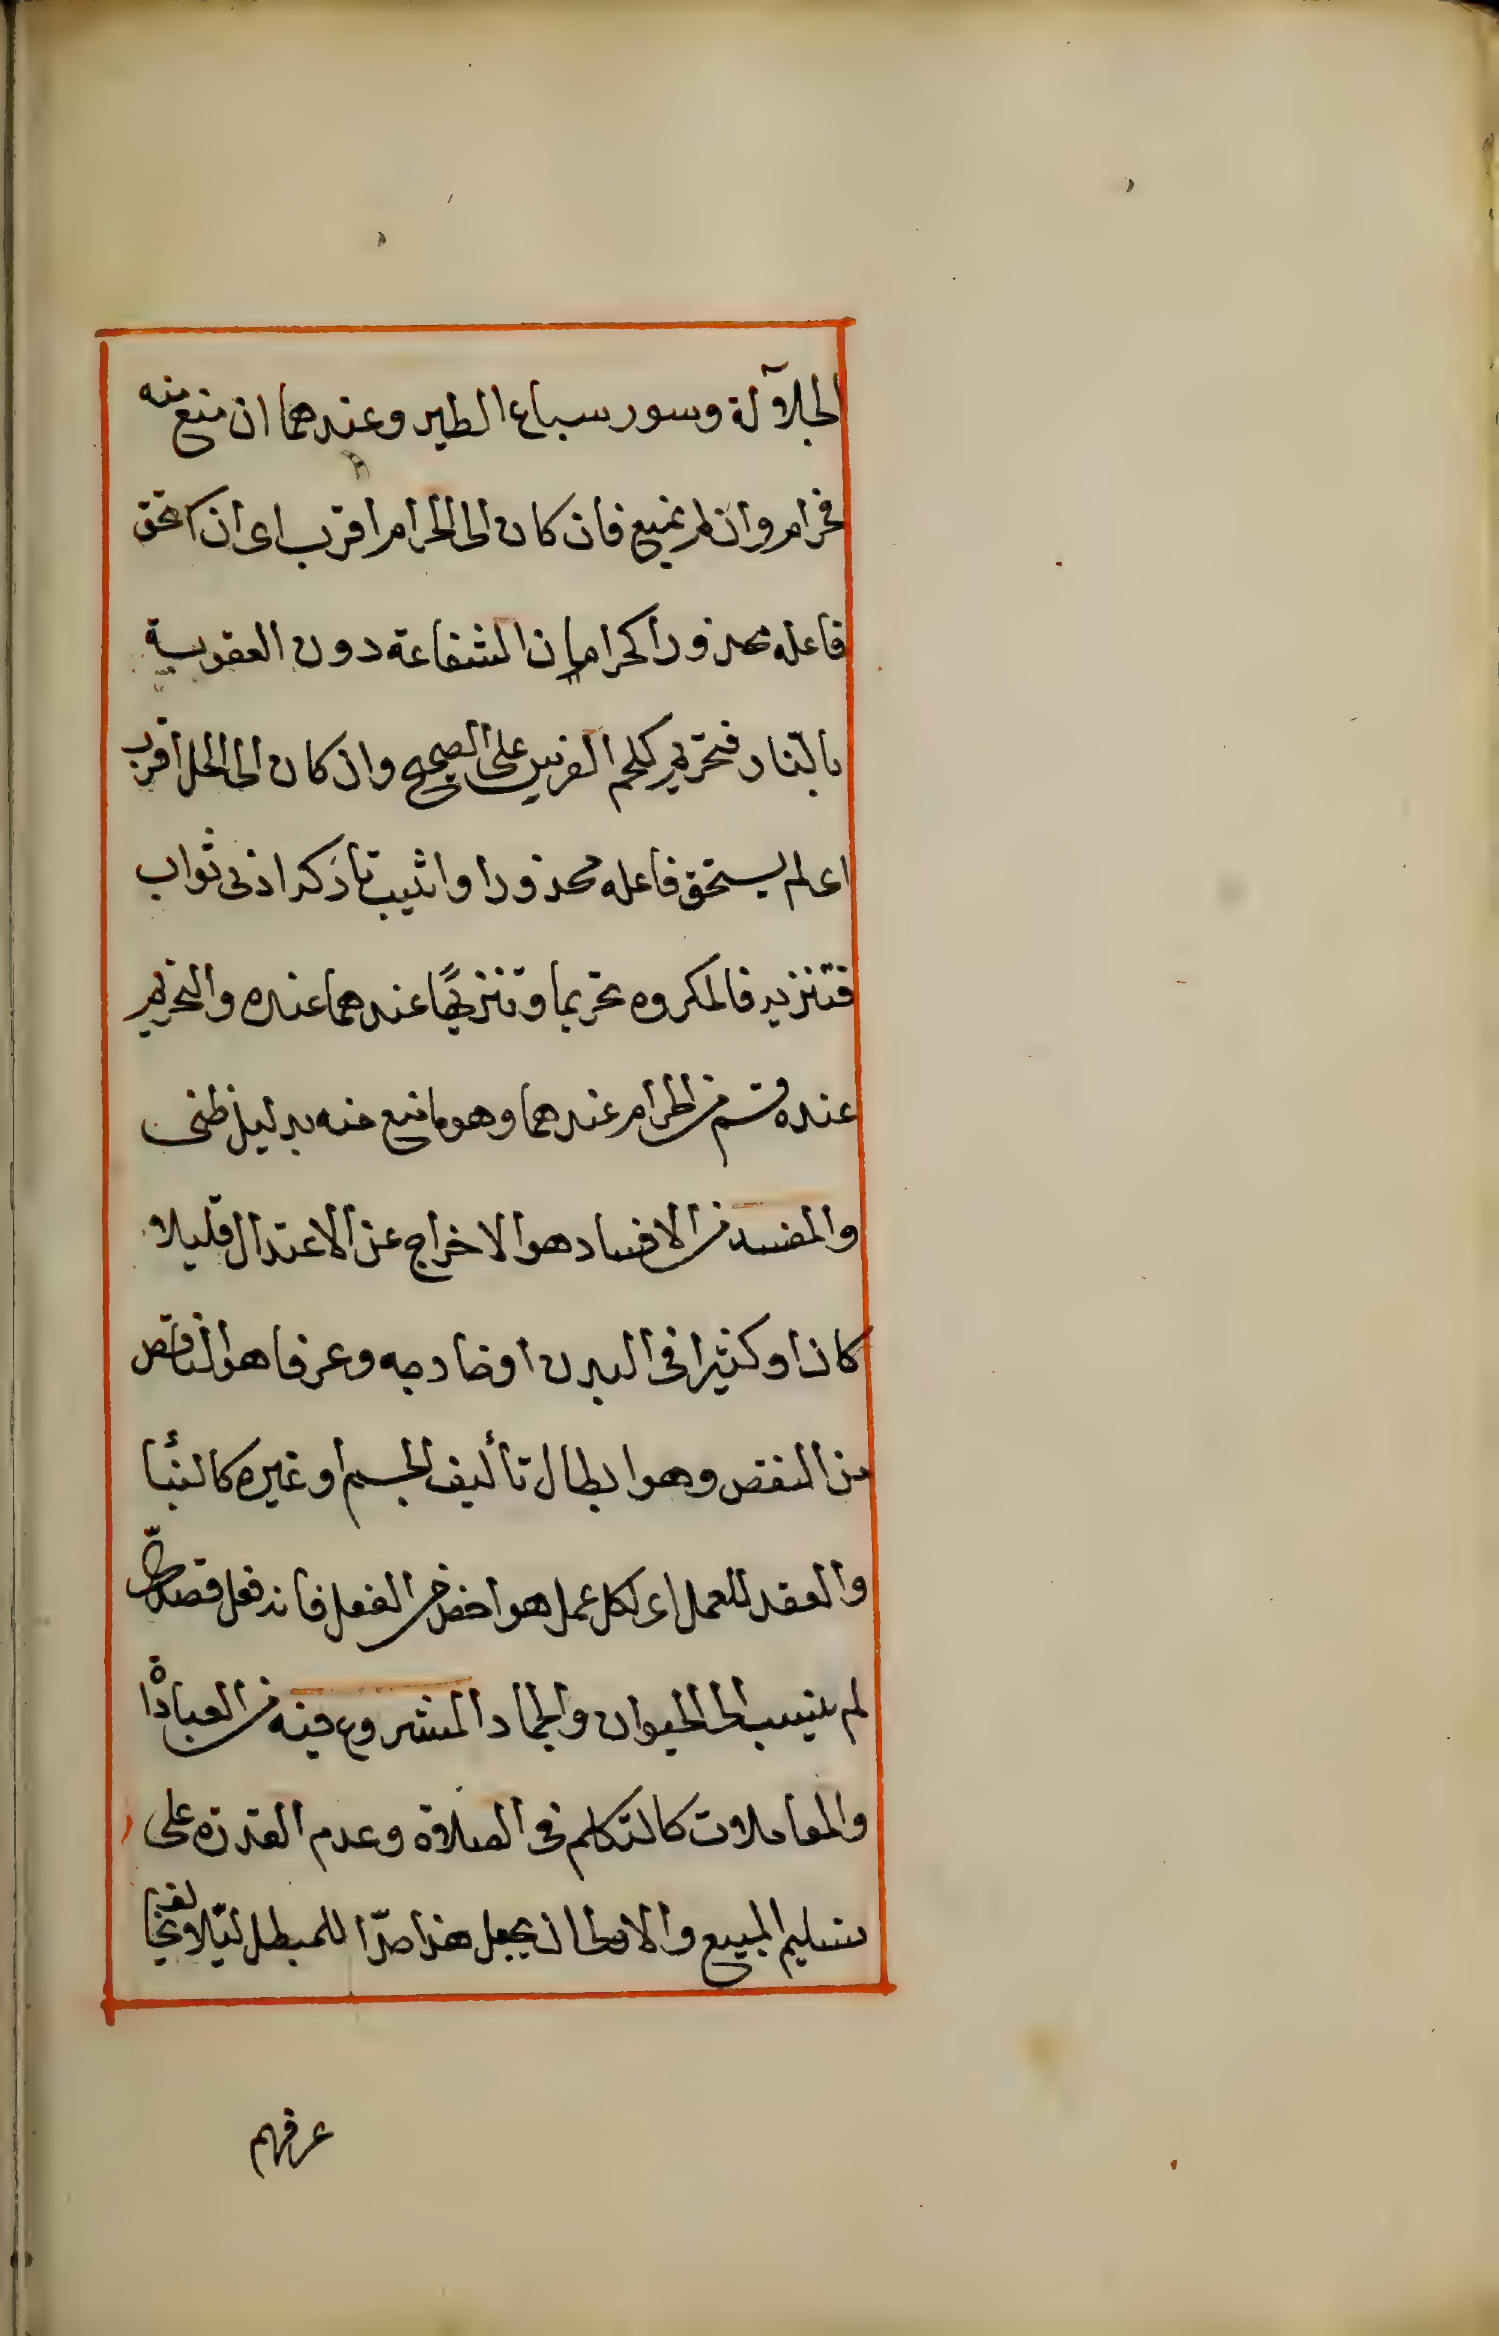 الجلآلة وسور سباع الطير وعندهما ان منع منه
فحرام وان لم يمنع فان كان الى الحرام اقرب اى ان استحق
فاعله محذورا كحرمان الشفاعة دون العقوبة
بالنار فتحريم كلحم الفرس على الصحيح وان كان الى الحل اقرب
اى لم يستحق فاعله محذورا واثيب تاركه ادنى ثواب
فتنزيه فالمكروه تحريما وتنزيهًا عندهما عنده والتحريم
عنده قسم من الحرام عندهما وهو ما منع منه بدليل ظنى
والمفسد من الافساد هو الاخراج عن الاعتدال قليلا
كان او كثيرا فى البدن او خارجه وعرفا هو الناقص
من النقض وهو ابطال تأليف الجسم او غيره كالبناء
والعقد للعمل اى لكل عمل هو اخص من الفعل فانه فعل قصدىّ
لم ينسب الى الحيوان والجماد المشروع فيه من العبادات
والمعاملات كالتكلم فى الصلاة وعدم القدرة على
تسليم المبيع والابطال يجعل هذا ضدّا للمبطل لئلا يخالف
عرفهم